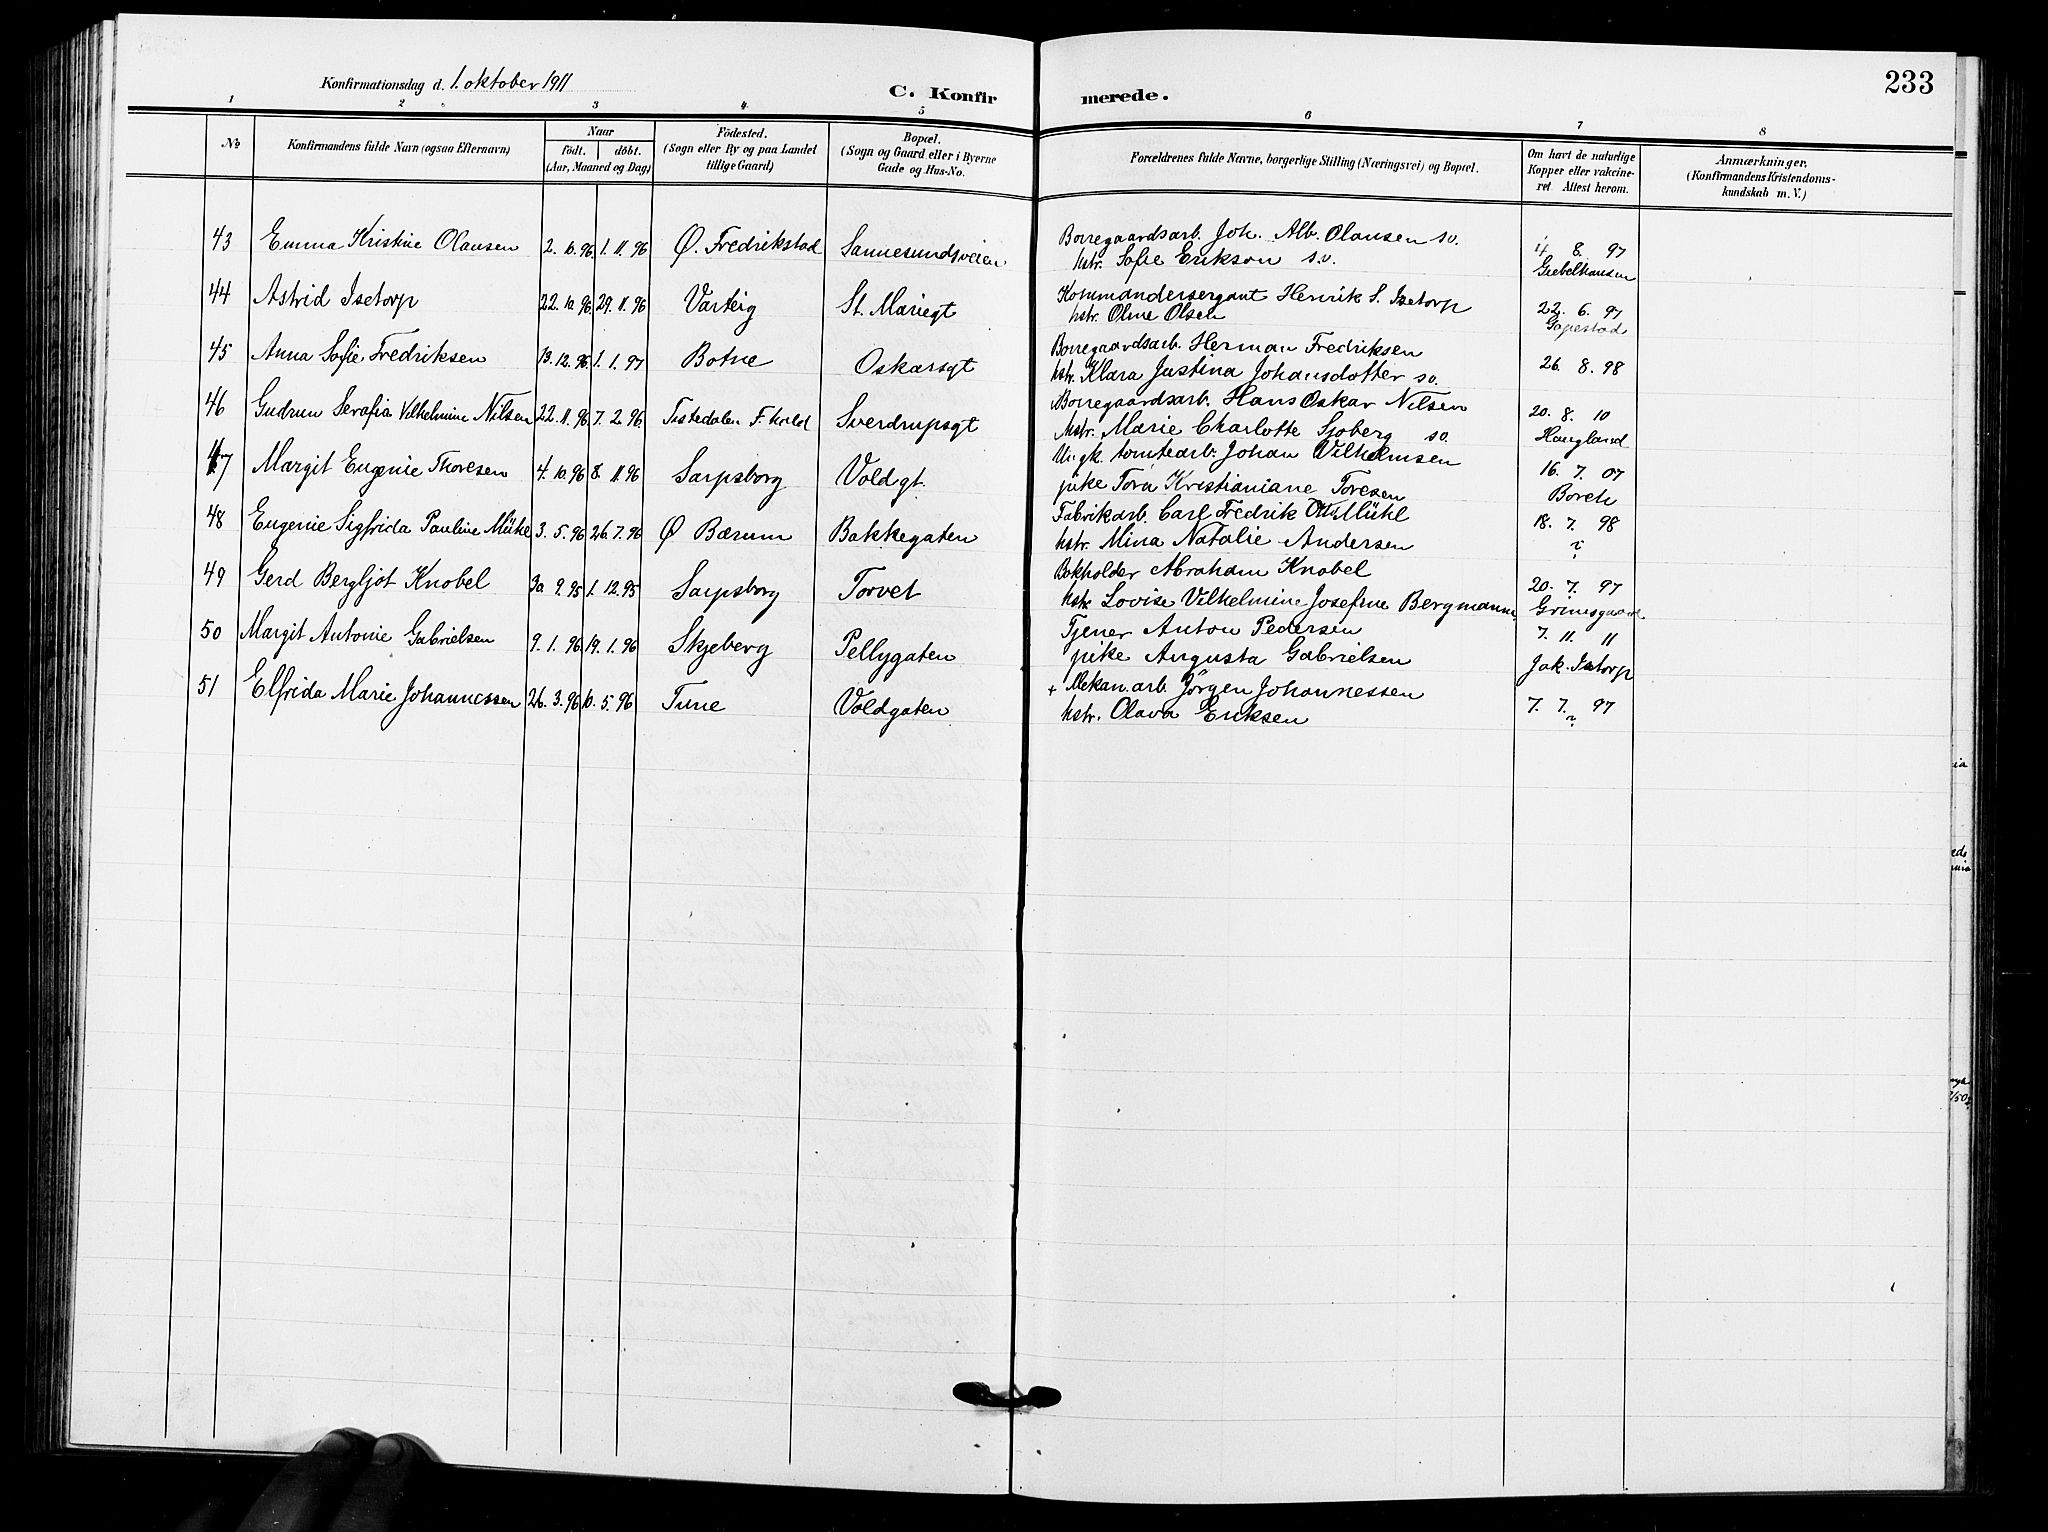 Konfirmationsdag d. 1. oktober 1911
C. Konfirmerede.
233
1 2 3 4 5 6 7 8
No
Konfirmandens fulde Navn (ogsaa Efternavn)
Naar
født. døbt.
(Aar, Maaned og Dag)
Fødested.
(Sogn eller By og paa Landet
tillige Gaard)
Bopæl.
(Sogn og Gaard eller i Byerne
Gade og Hus-No.
Forældrenes fulde Navne, borgerlige Stilling (Næringsvei) og Bopæl.
Om havt de naturlige
Kopper eller vakcine-
ret Attest herom.
Anmærkninger.
(Konfirmandens Kristendoms-
kundskab m. V.)
43 Emma Kristine Olausen 2. 10. 96 1. 11. 96 Ø. Fredrikstad Sannesundsveien Borregaardsarb. Joh. Alb. Olausen sv. 4. 8. 97
hstr. Sofie Erikson s.v. Giebelhausen
44 Astrid Isetorp 22. 10. 96 29. 11. 96 Varteig St. Mariegt Kommandersergant Henrik S. Isetorp 22. 6. 97
hstr. Oline Olsen Gapestad
45 Anna Sofie Fredriksen 13. 12. 96 1. 1. 97 Botne Oskarsgt Borregaardsarb. Herman Fredriksen 26. 8. 98
hstr. Klara Justina Johansdotter sv.
46 Gudrun Serafia Vilhelmine Nilsen 22. 11. 96 7. 2. 96 Tistedalen F.hald Sverdrupsgt Borregaardsarb. Hans Oskar Nilsen 20. 8. 10
hstr. Marie Charlotte Sjøberg sv. Haugland
47 Margit Eugenie Thoresen 4. 10. 96 8. 11. 96 Sarpsborg Voldgt. Ungk. tomtearb. Johan Vilhelmsen 16. 7. 07
pike Tora Kristianiane Toresen Borch
48 Eugenie Sigfrida Pauline Mühl 3. 5. 96 26. 7. 96 Ø Bærum Bakkegaten Fabrikarb. Carl Fredrik Otto Mühl 18. 7. 98
hstr. Mina Natalie Andersen ?
49 Gerd Bergljot Knobel 30. 9. 95 1. 12. 95 Sarpsborg Torvet Bokholder Abraham Knobel 20. 7. 97
hstr. Lovise Vilhelmine Josefine Bergmann Grimsgaard
50 Margit Antonie Gabrielsen 9. 1. 96 19. 1. 96 Skjeberg Pellygaten Tjener Anton Pedersen 7. 11. 11
pike Augusta Gabrielsen Jak. Istorp
51 Elfrida Marie Johannessen 26. 3. 96 10. 5. 96 Tune Voldgaten + Mekan. arb. Jörgen Johannessen 7. 7. 97
hstr. Olava Eriksen ?